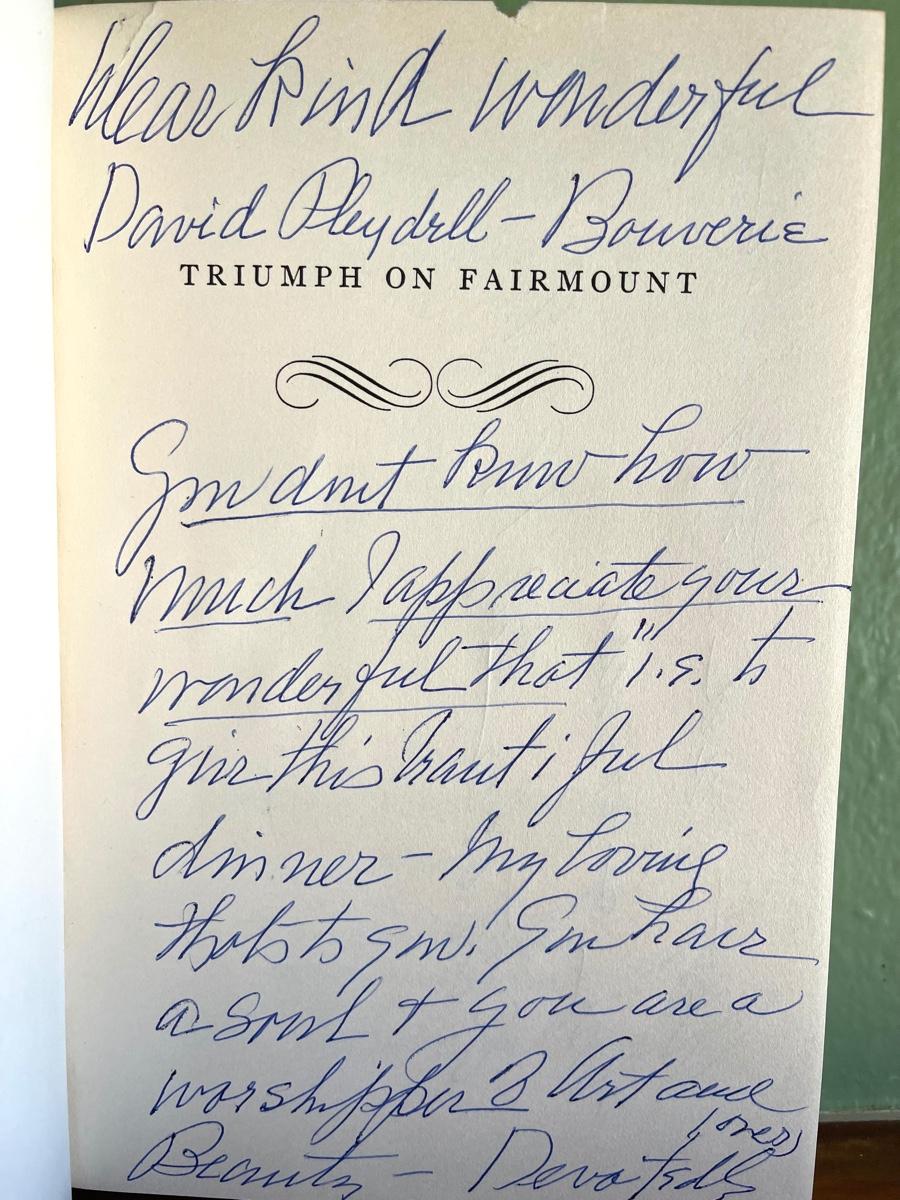 Dear kind wonderful
David Pleydell-Bouverie
TRIUMPH ON FAIRMOUNT
You dont know how
much I appreciate your
wonderful that "i.e. to
give this beautiful
dinner - My loving
thots to you. You have
a soul + you are a
worshipper of Art and
(over)
Beauty - Devotedly